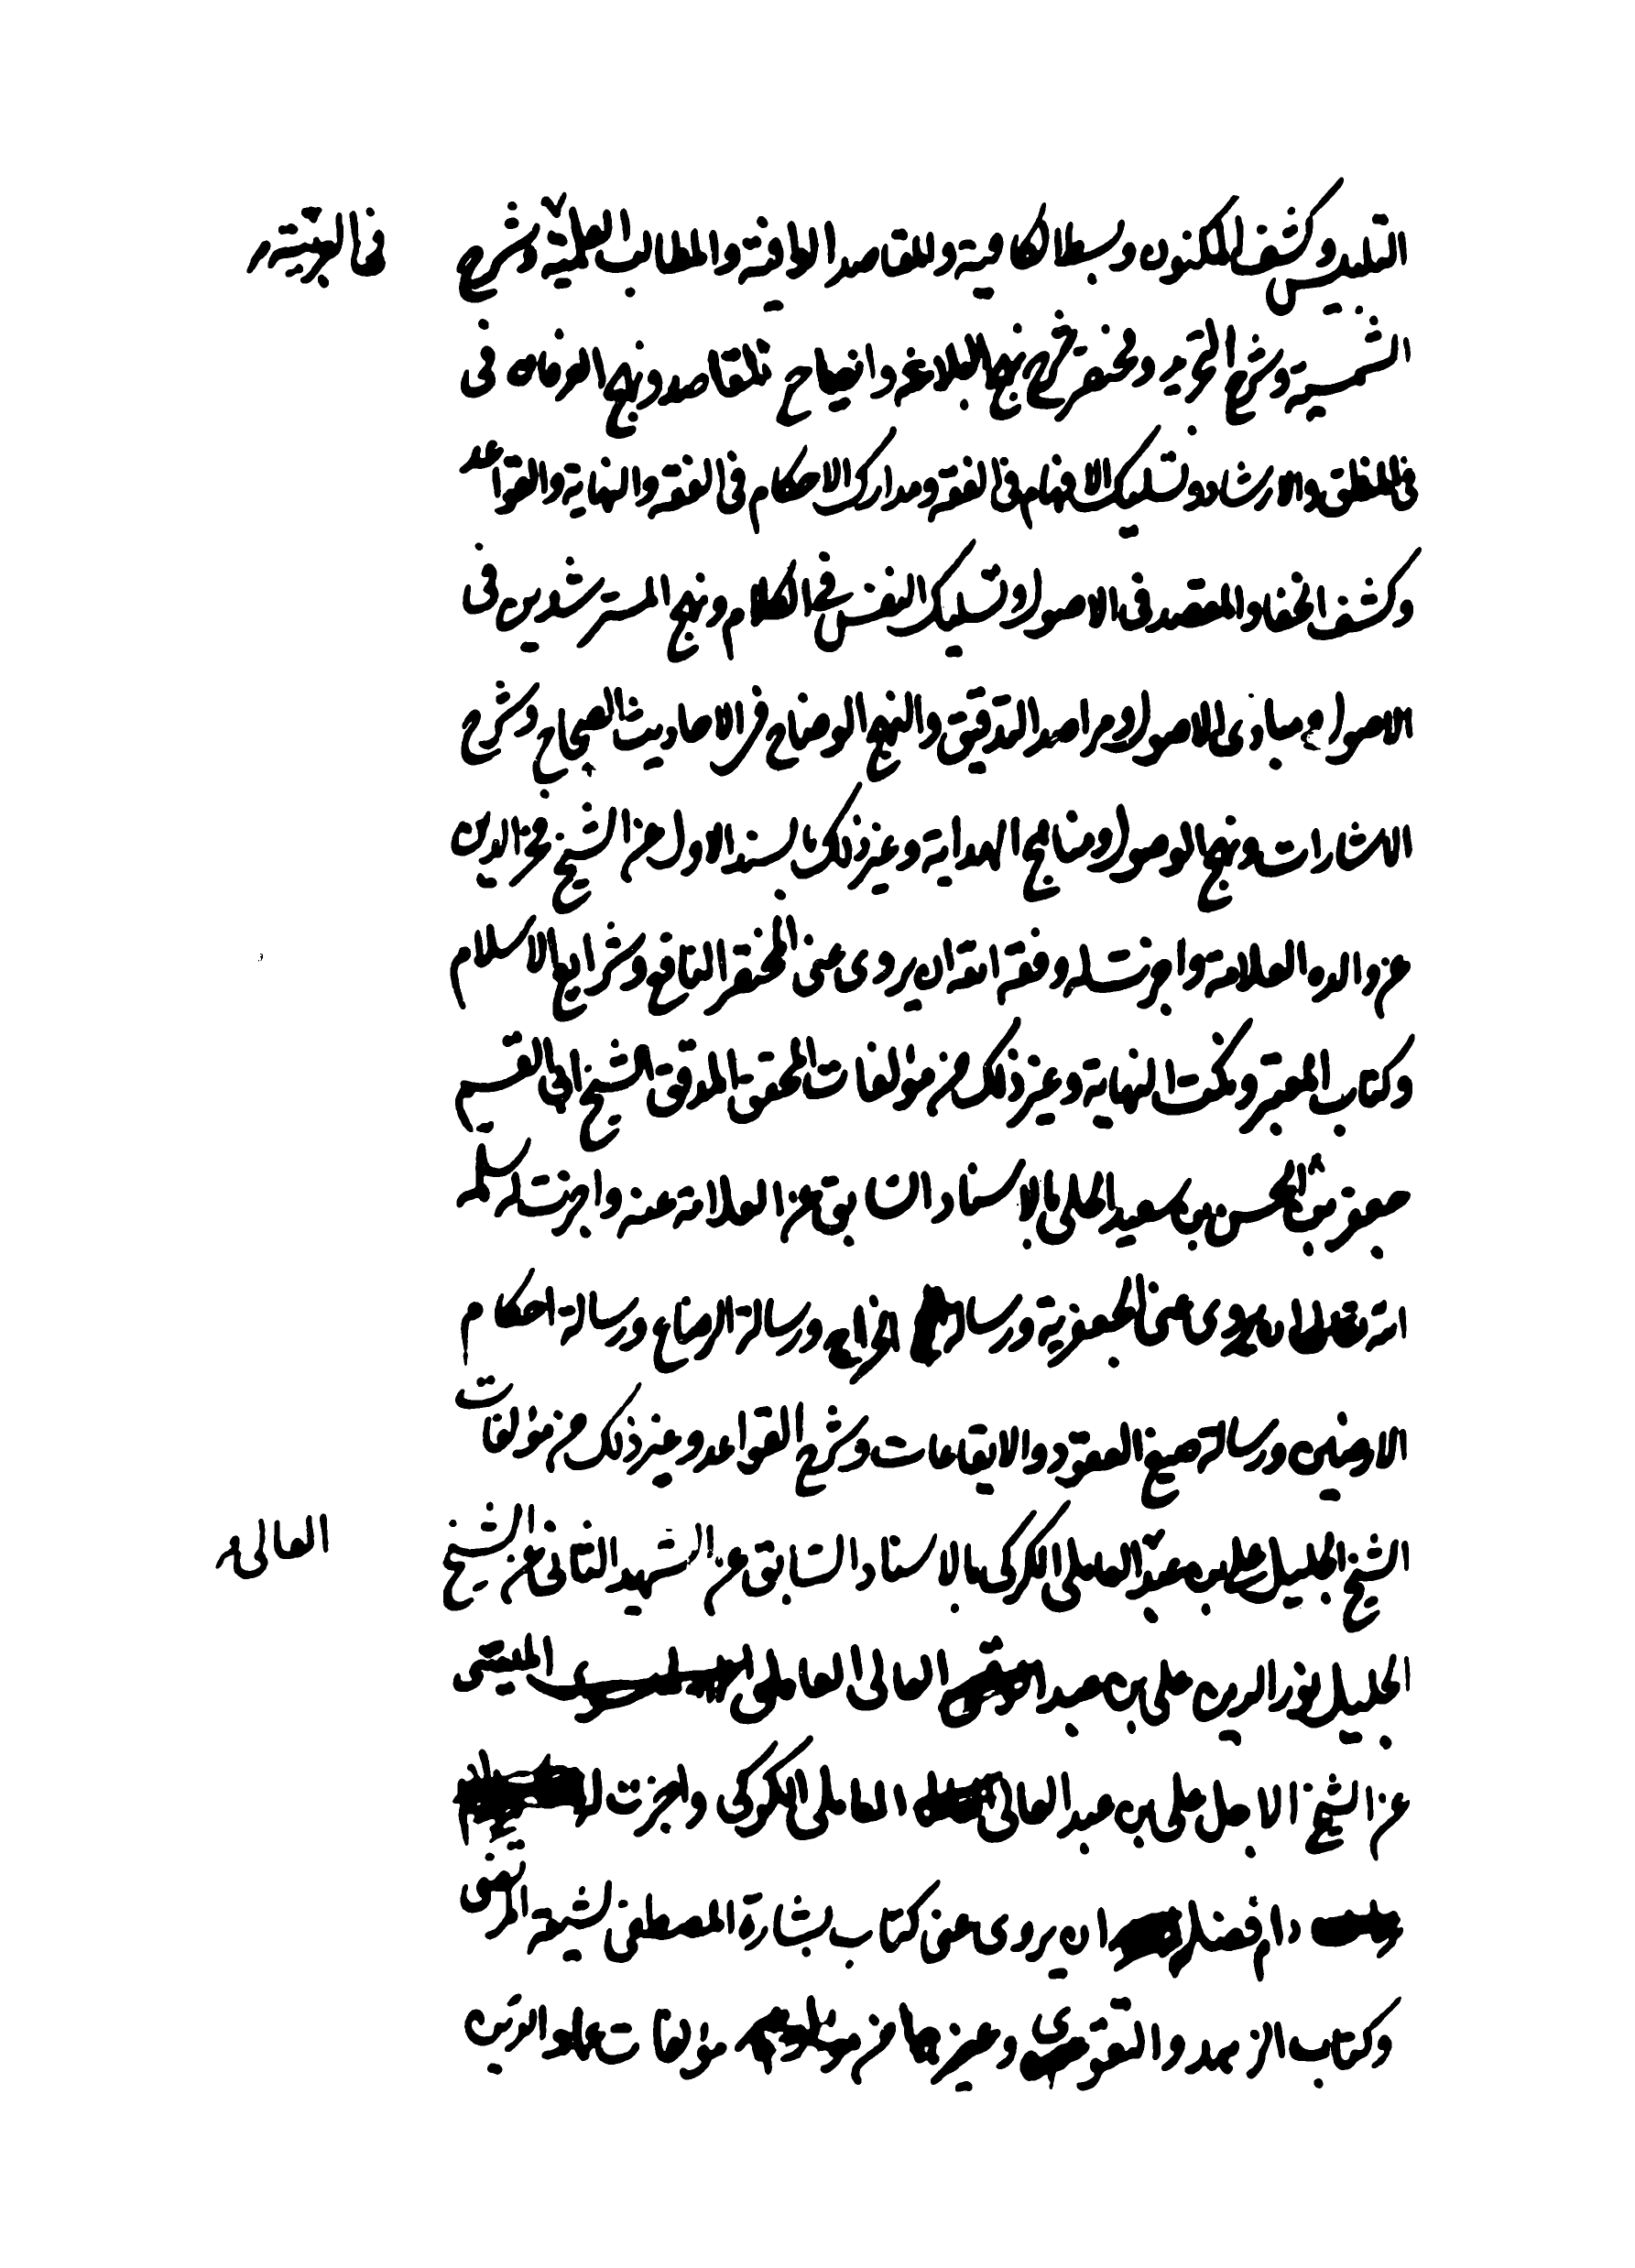 التلبيس وكشف المكنون وبسط الكافية والمقاصد الوافية والمطالب العلية وشرح
في العربية
الشمسية وشرح التجريد ومختصر شرح نهج البلاغة وايضاح المقاصد ونهج العرفان في
في المنطق والارشاد وتسليك الافهام في الفقه ومدارك الاحكام في الفقه والنهاية والقواعد
وكشف الخفاء والمقصد في الاصول وتسليك النفس في الكلام ونهج المسترشدين في
الاصول ومبادئ الاصول ومراصد التدقيق والنهج الوضاح في الاحاديث الصحاح وشرح
الاشارات ونهج الوصول ومناهج الهداية وغير ذلك بالسند الاول عن الشيخ فخر الدين
عن والده العلامة واجزت له وفقه الله ان يروى عنى المختصر النافع وشرايع الاسلام
وكتاب المعتبر ونكت النهاية وغير ذلك من مؤلفات المحقق المدقق الشيخ ابى القسم
جعفر بن الحسن بن سعيد الحلى بالاسناد السابق عن العلامة عنه واجزت له سلمه
الله تعالى ان يروى عنى الجعفرية ورسالة الخراج ورسالة الرضاع ورسالة احكام
الارضين ورسالة صيغ العقود والايقاعات وشرح القواعد وغير ذلك من مؤلفات
الشيخ الجليل على بن عبد العاملى الكركى بالاسناد السابق عن الشهيد الثانى عن الشيخ
العالى
الجليل نور الدين على بن عبد العالى العاملى الميسى
عن الشيخ الاجل على بن عبد العالى العاملى الكركى واجزت له
دام فضله ان يروى عنى كتاب بشارة المصطفى لشيعة المرتضى
وكتاب الزهد والتقوى وغيرها من مؤلفات عماد الدين